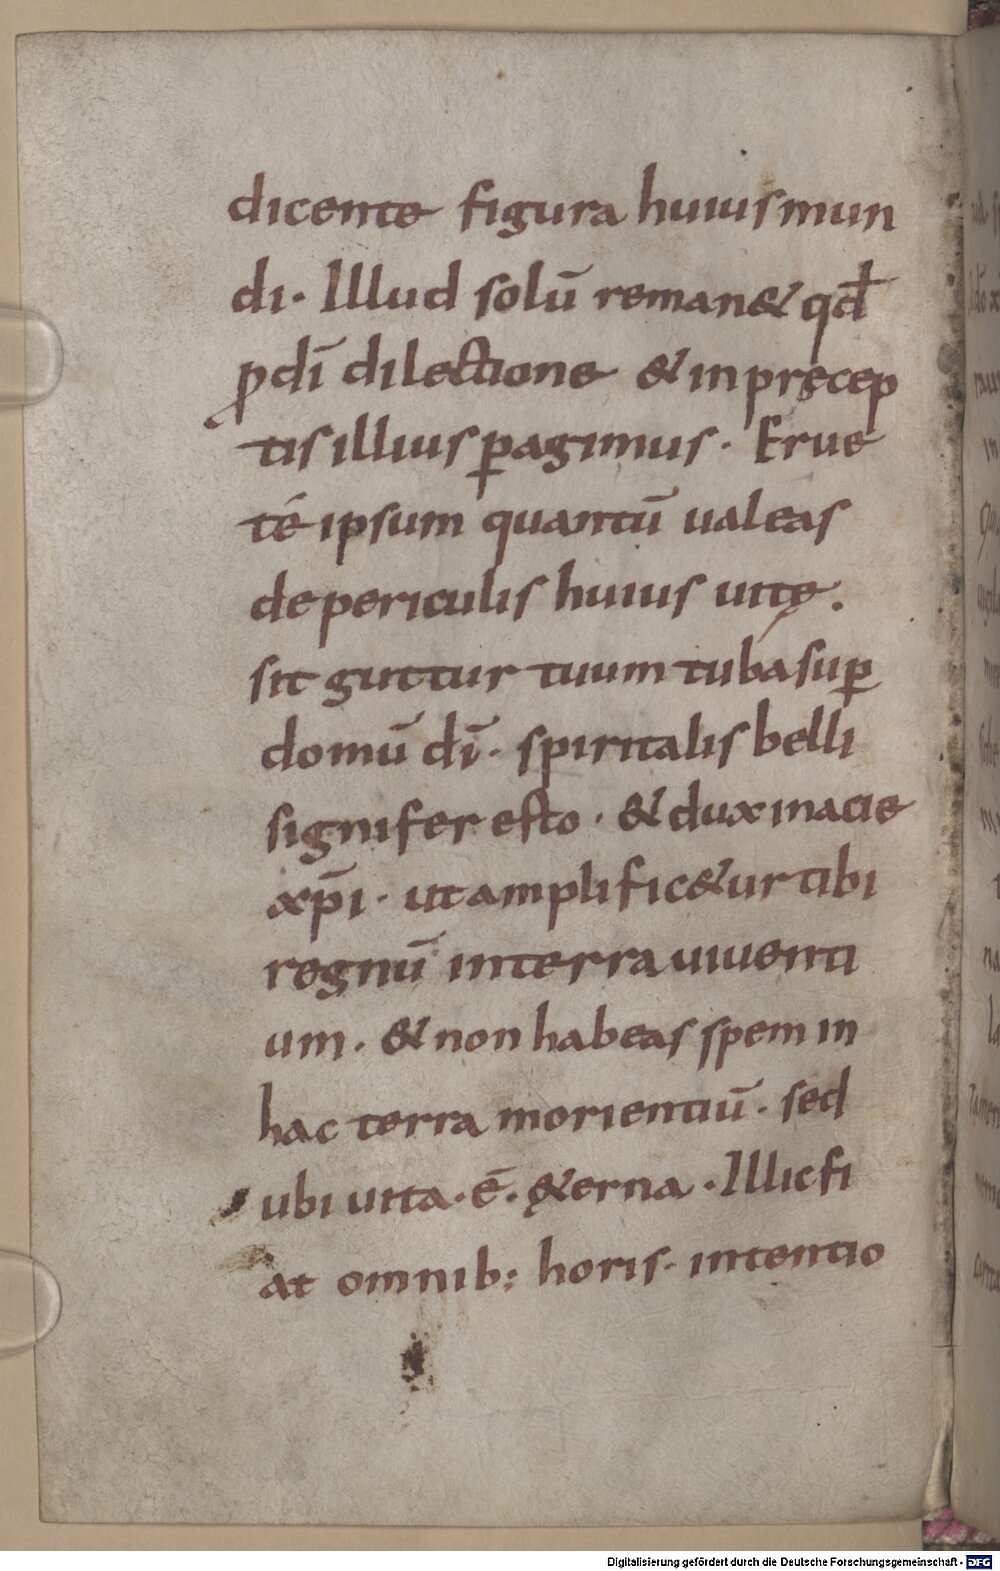 dicente figura huius mun
di· Illud solū reman& qđ
ꝓ dī dilectione & in pręcep
tis illius ꝑagimus· Erue
té ipsum quantū ualeas
de periculis huius uitę.
sit guttur tuum tuba suꝑ
domū dī· spiritalis belli
signifer esto· & dux in acie
xp̄i· ut amplific&ur tibi
regnū in terra uiuenti
um. & non habeas spem in
hac terra morientiū· sed
ubi uita·ē· ę&erna· Illic fi
at omnib: horis· intentio
Digitalisierung gefördert durch die Deutsche Forschungsgemeinschaft - DFG